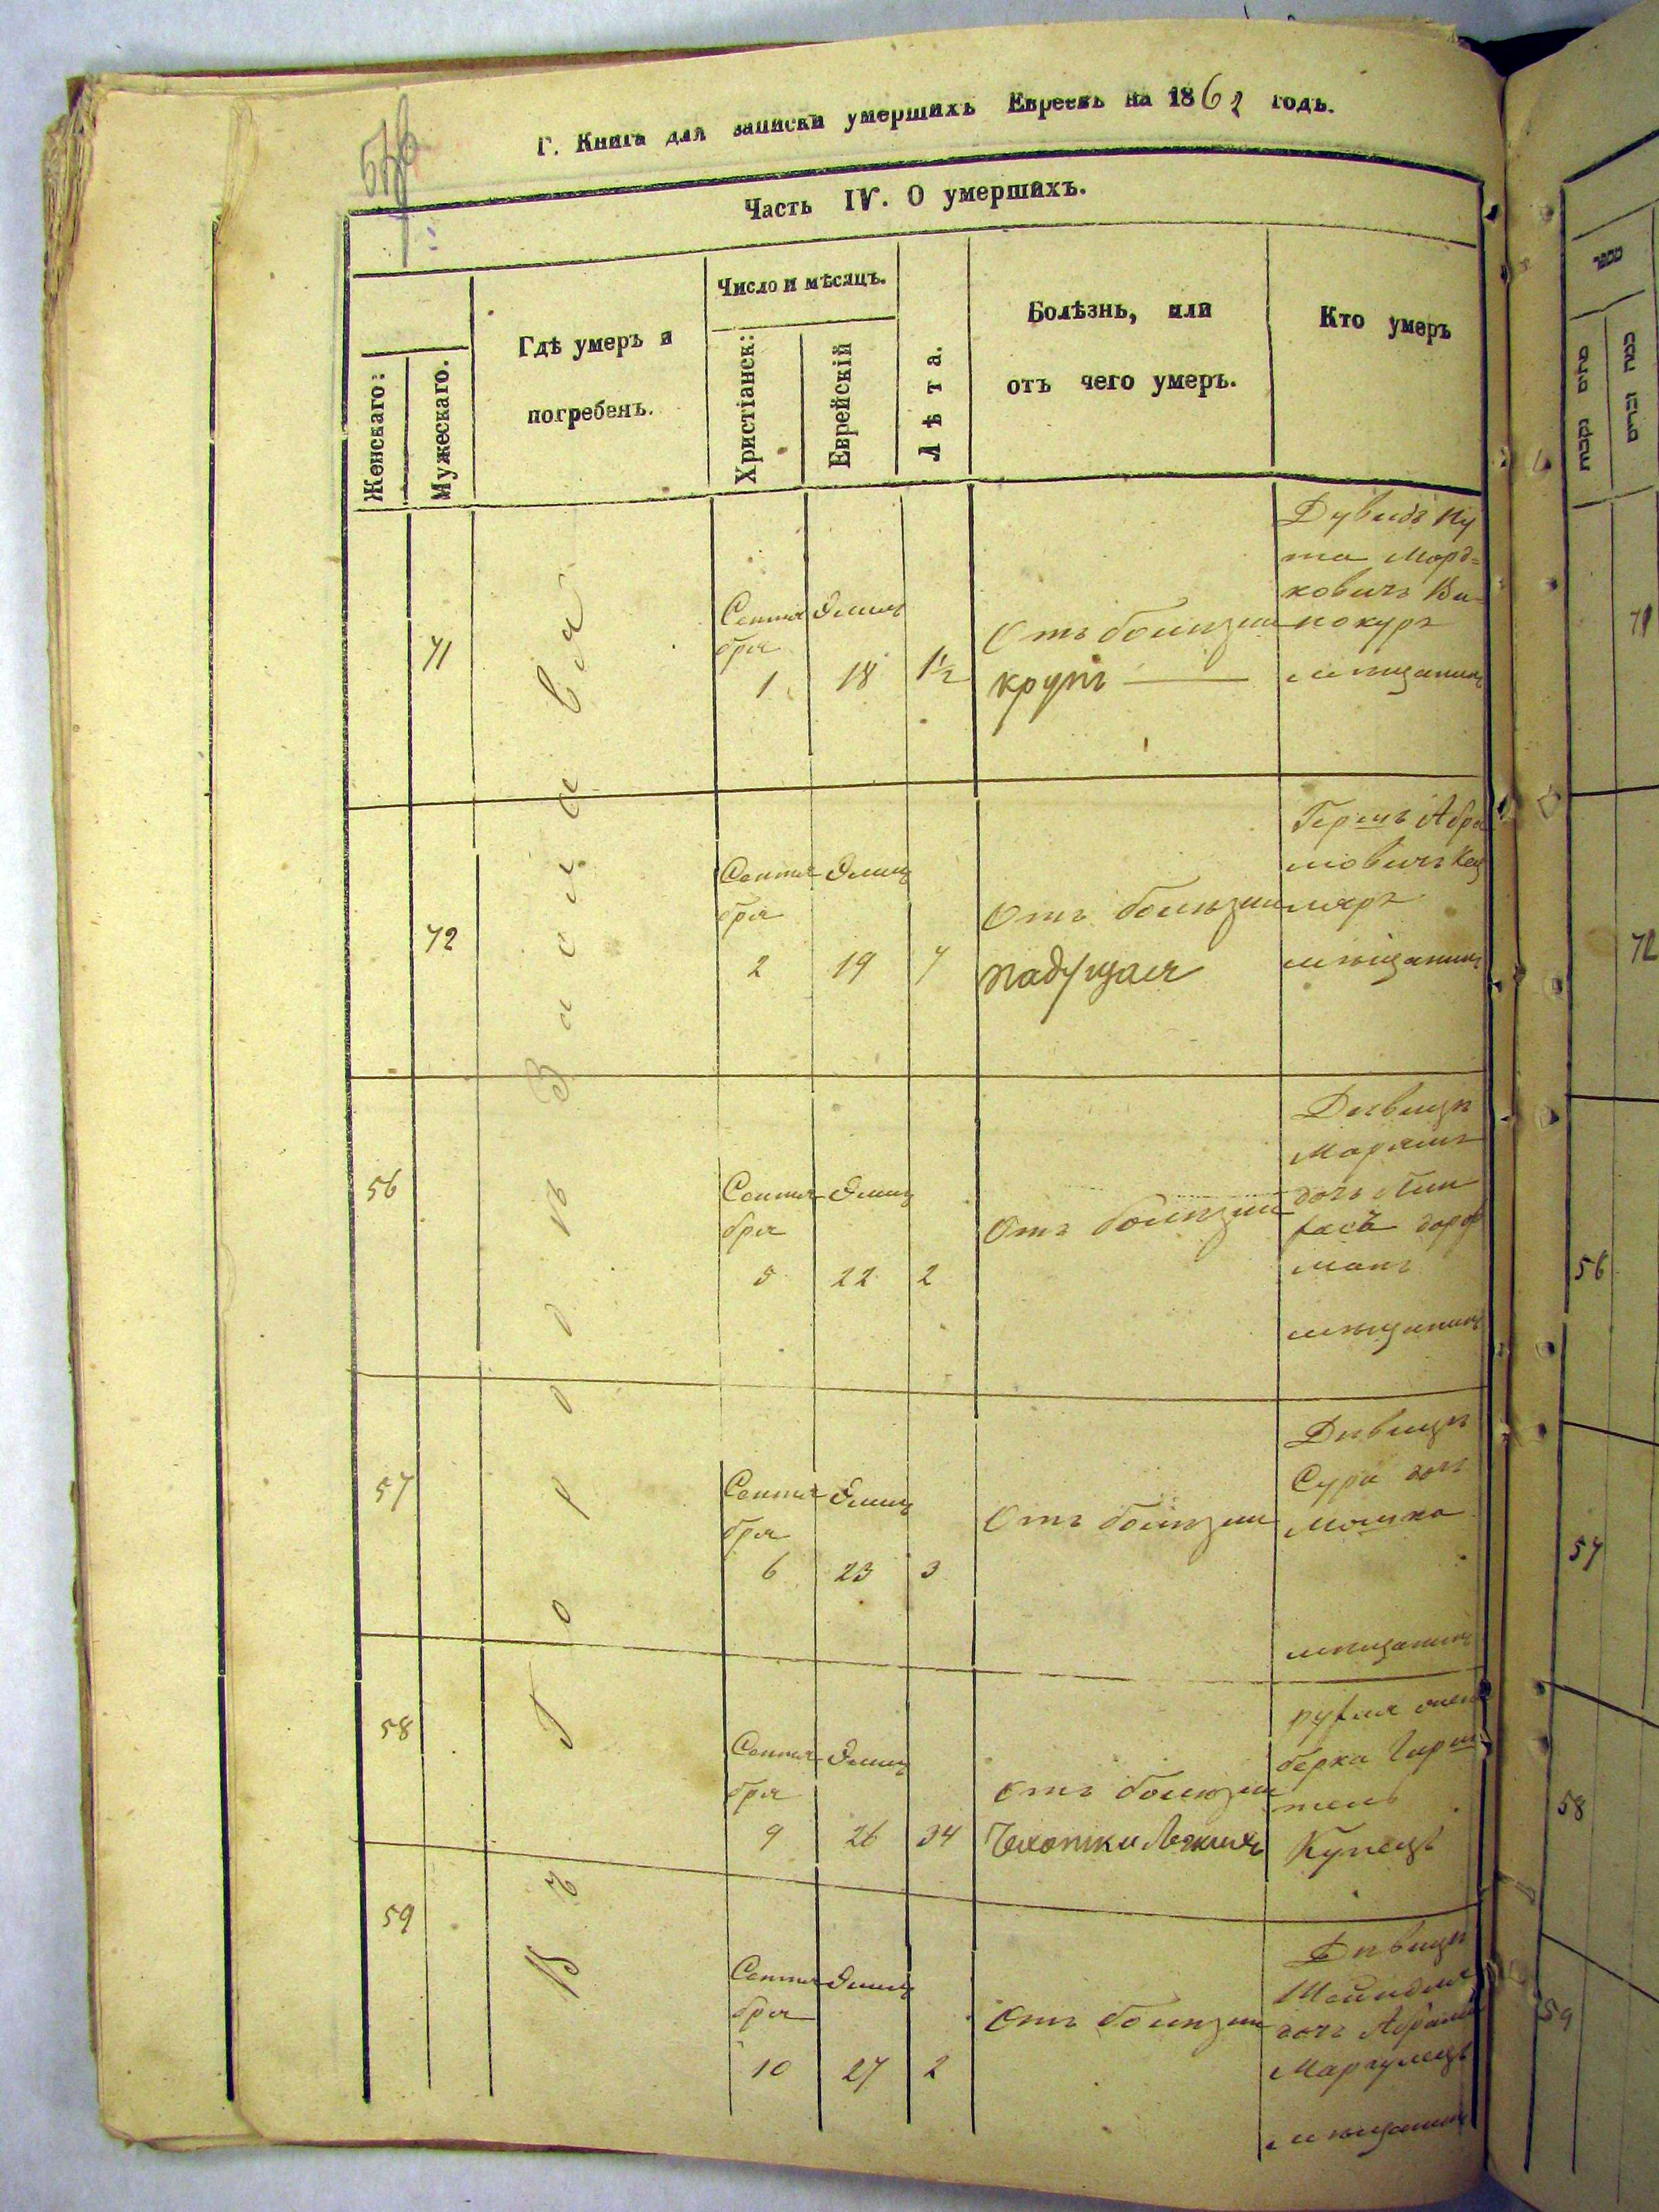 Г. Книга для записки умершихъ Евреевъ на 1862 годъ.
Часть IV. О умершихъ.
Женскаго:
Мужескаго.
Гдѣ умеръ и
погребенъ.
Число и мѣсяцъ.
Христіанск:
Еврейскій
Лѣта.
Болѣзнь, или
отъ чего умеръ.
Кто умеръ
Въ Городѣ Заславѣ
71
Сентя
бря
1
Элиц
18
1½
Отъ болѣзни
крупъ
Дувидъ Ну
та Морд=
ковичъ Ви=
нокуръ
мѣщанинъ
72
Сентя
бря
2
Элиц
19
7
Отъ болѣзни
падущая
Гершъ Абра
мовичъ
мѣщанинъ
56
Сентя
бря
5
Элиц
22
2
Отъ болѣзни
Дѣвица
Марямъ
дочь Пин
хасъ дорф
манъ
мѣщанинъ
57
Сентя
бря
6
Элиц
23
3
Отъ болѣзни
Дѣвица
Сура дочь
Мошка
мѣщанинъ
58
Сентя
бря
9
Элиц
26
34
Отъ болѣзни
Чахотки Легкихъ
рухля жена
берка
Купецъ
59
Сентя
бря
10
Элиц
27
2
Отъ болѣзни
Дѣвица
Шейндля
дочь Абрама
Маргулецъ
мѣщанинъ
מתים נקבות
כמה זכרים
71
72
56
57
58
59